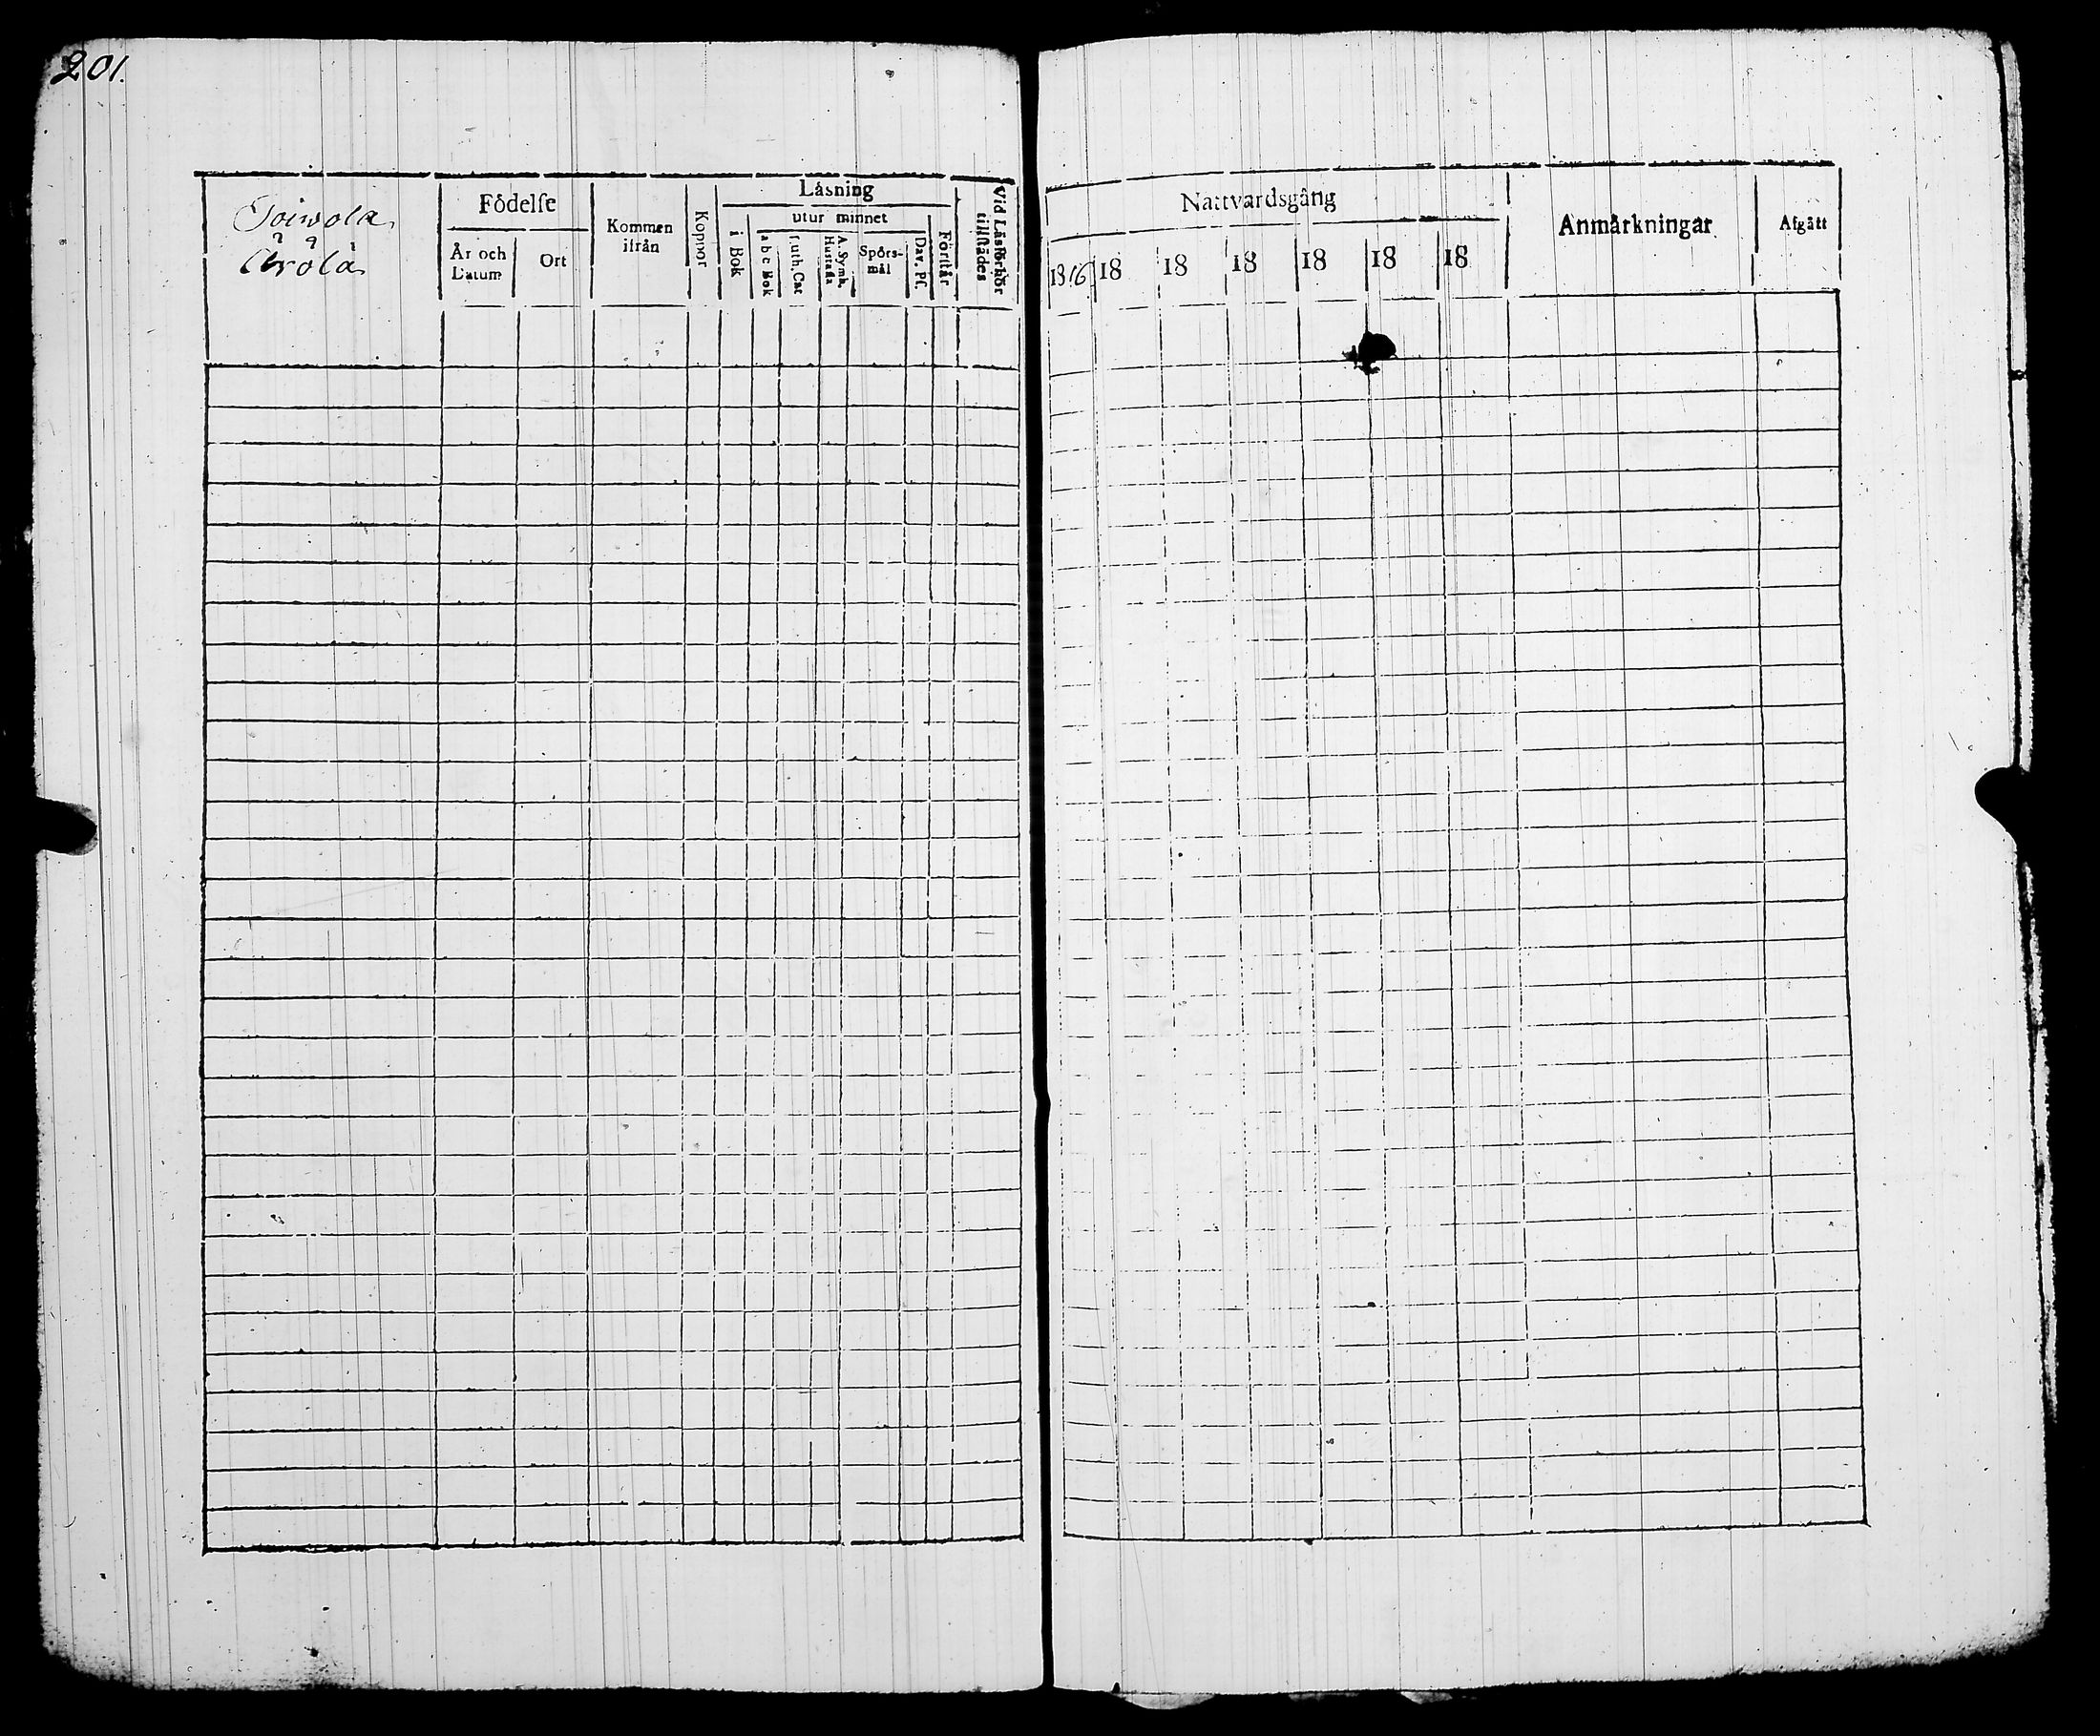 201.
Toiwola
Födelſe
År och Datum
Ort
Kommen ifrån
Koppor
Läsning
i Bok
utur minnet
a b c Bok
Luth. Cat
A. Symb. Hustafla
Spörs-mål
Dav. Pſ.
Förſtår
Vid Läsförhör tillſtädes
Nattvardsgång
1816
18
18
18
18
18
18
Anmärkningar
Afgått